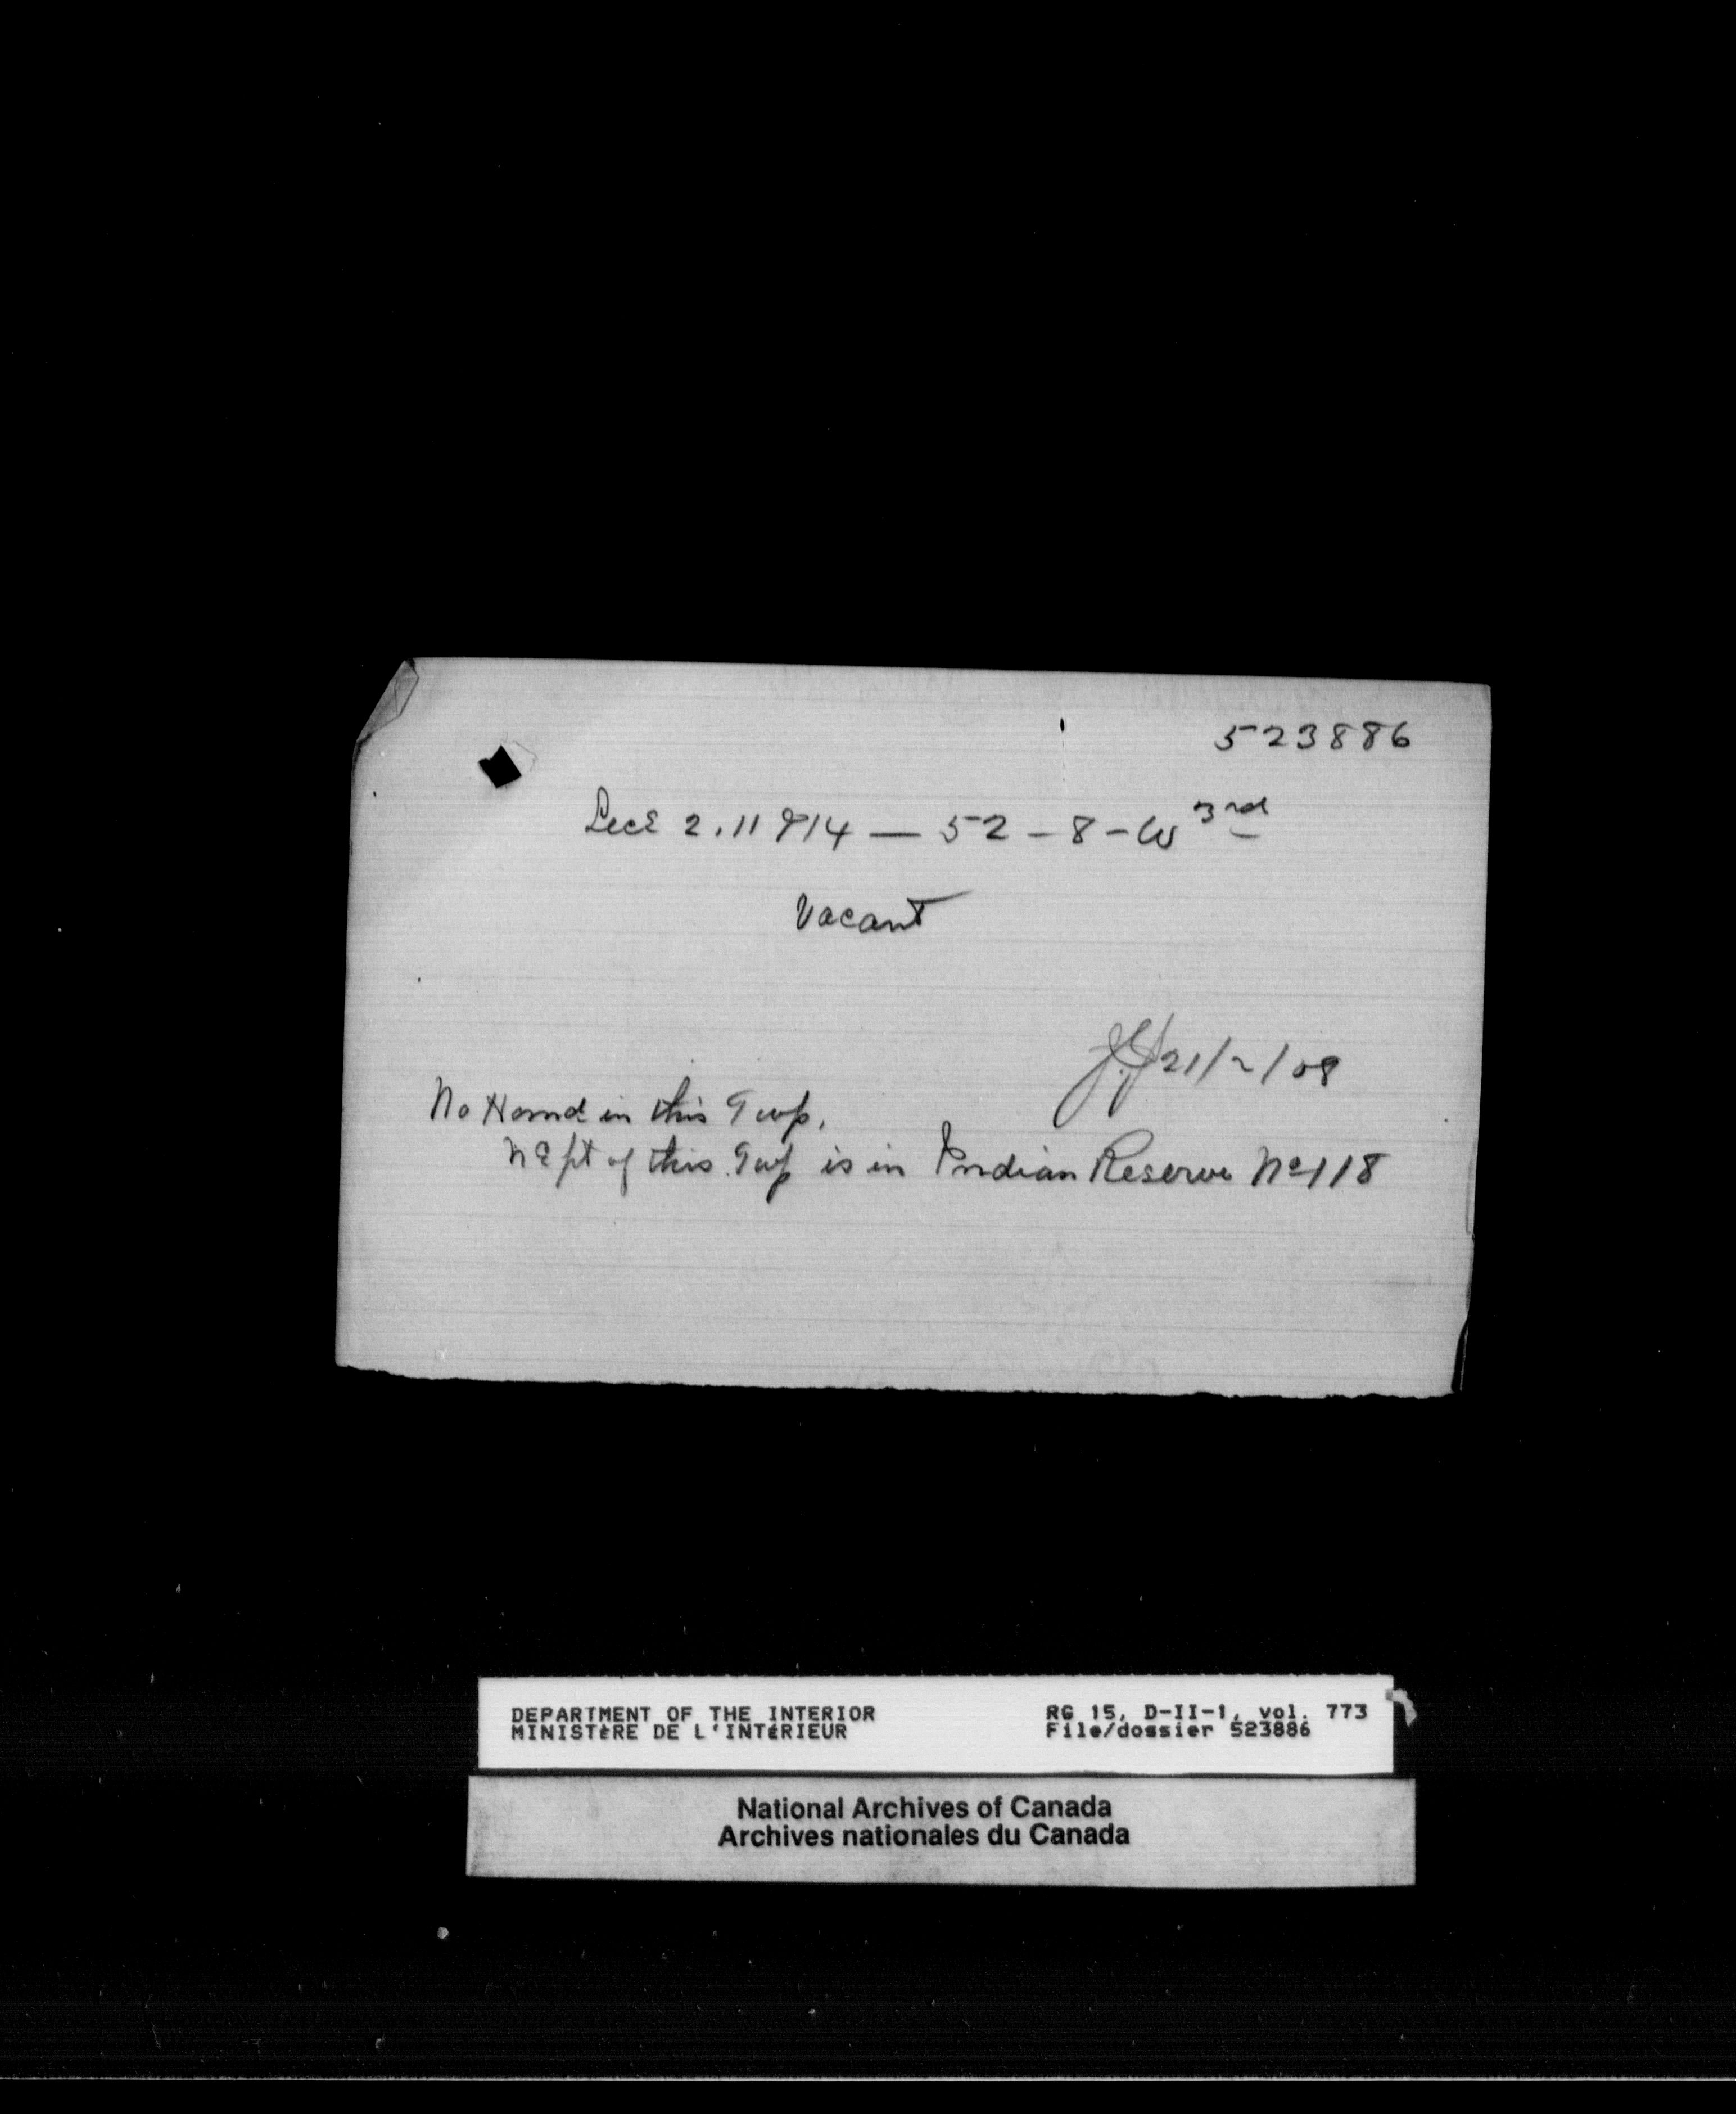 523886
Secs 2.11 & 14 — 52 - 8 - W 3rd
Vacant
21/2/08
No Homd in this Twp.
N E pt of this Twp is in Indian Reserve No 118
DEPARTMENT OF THE INTERIOR
MINISTÈRE DE L'INTÉRIEUR
RG 15, D-II-1, vol. 773
File/dossier 523886
National Archives of Canada
Archives nationales du Canada